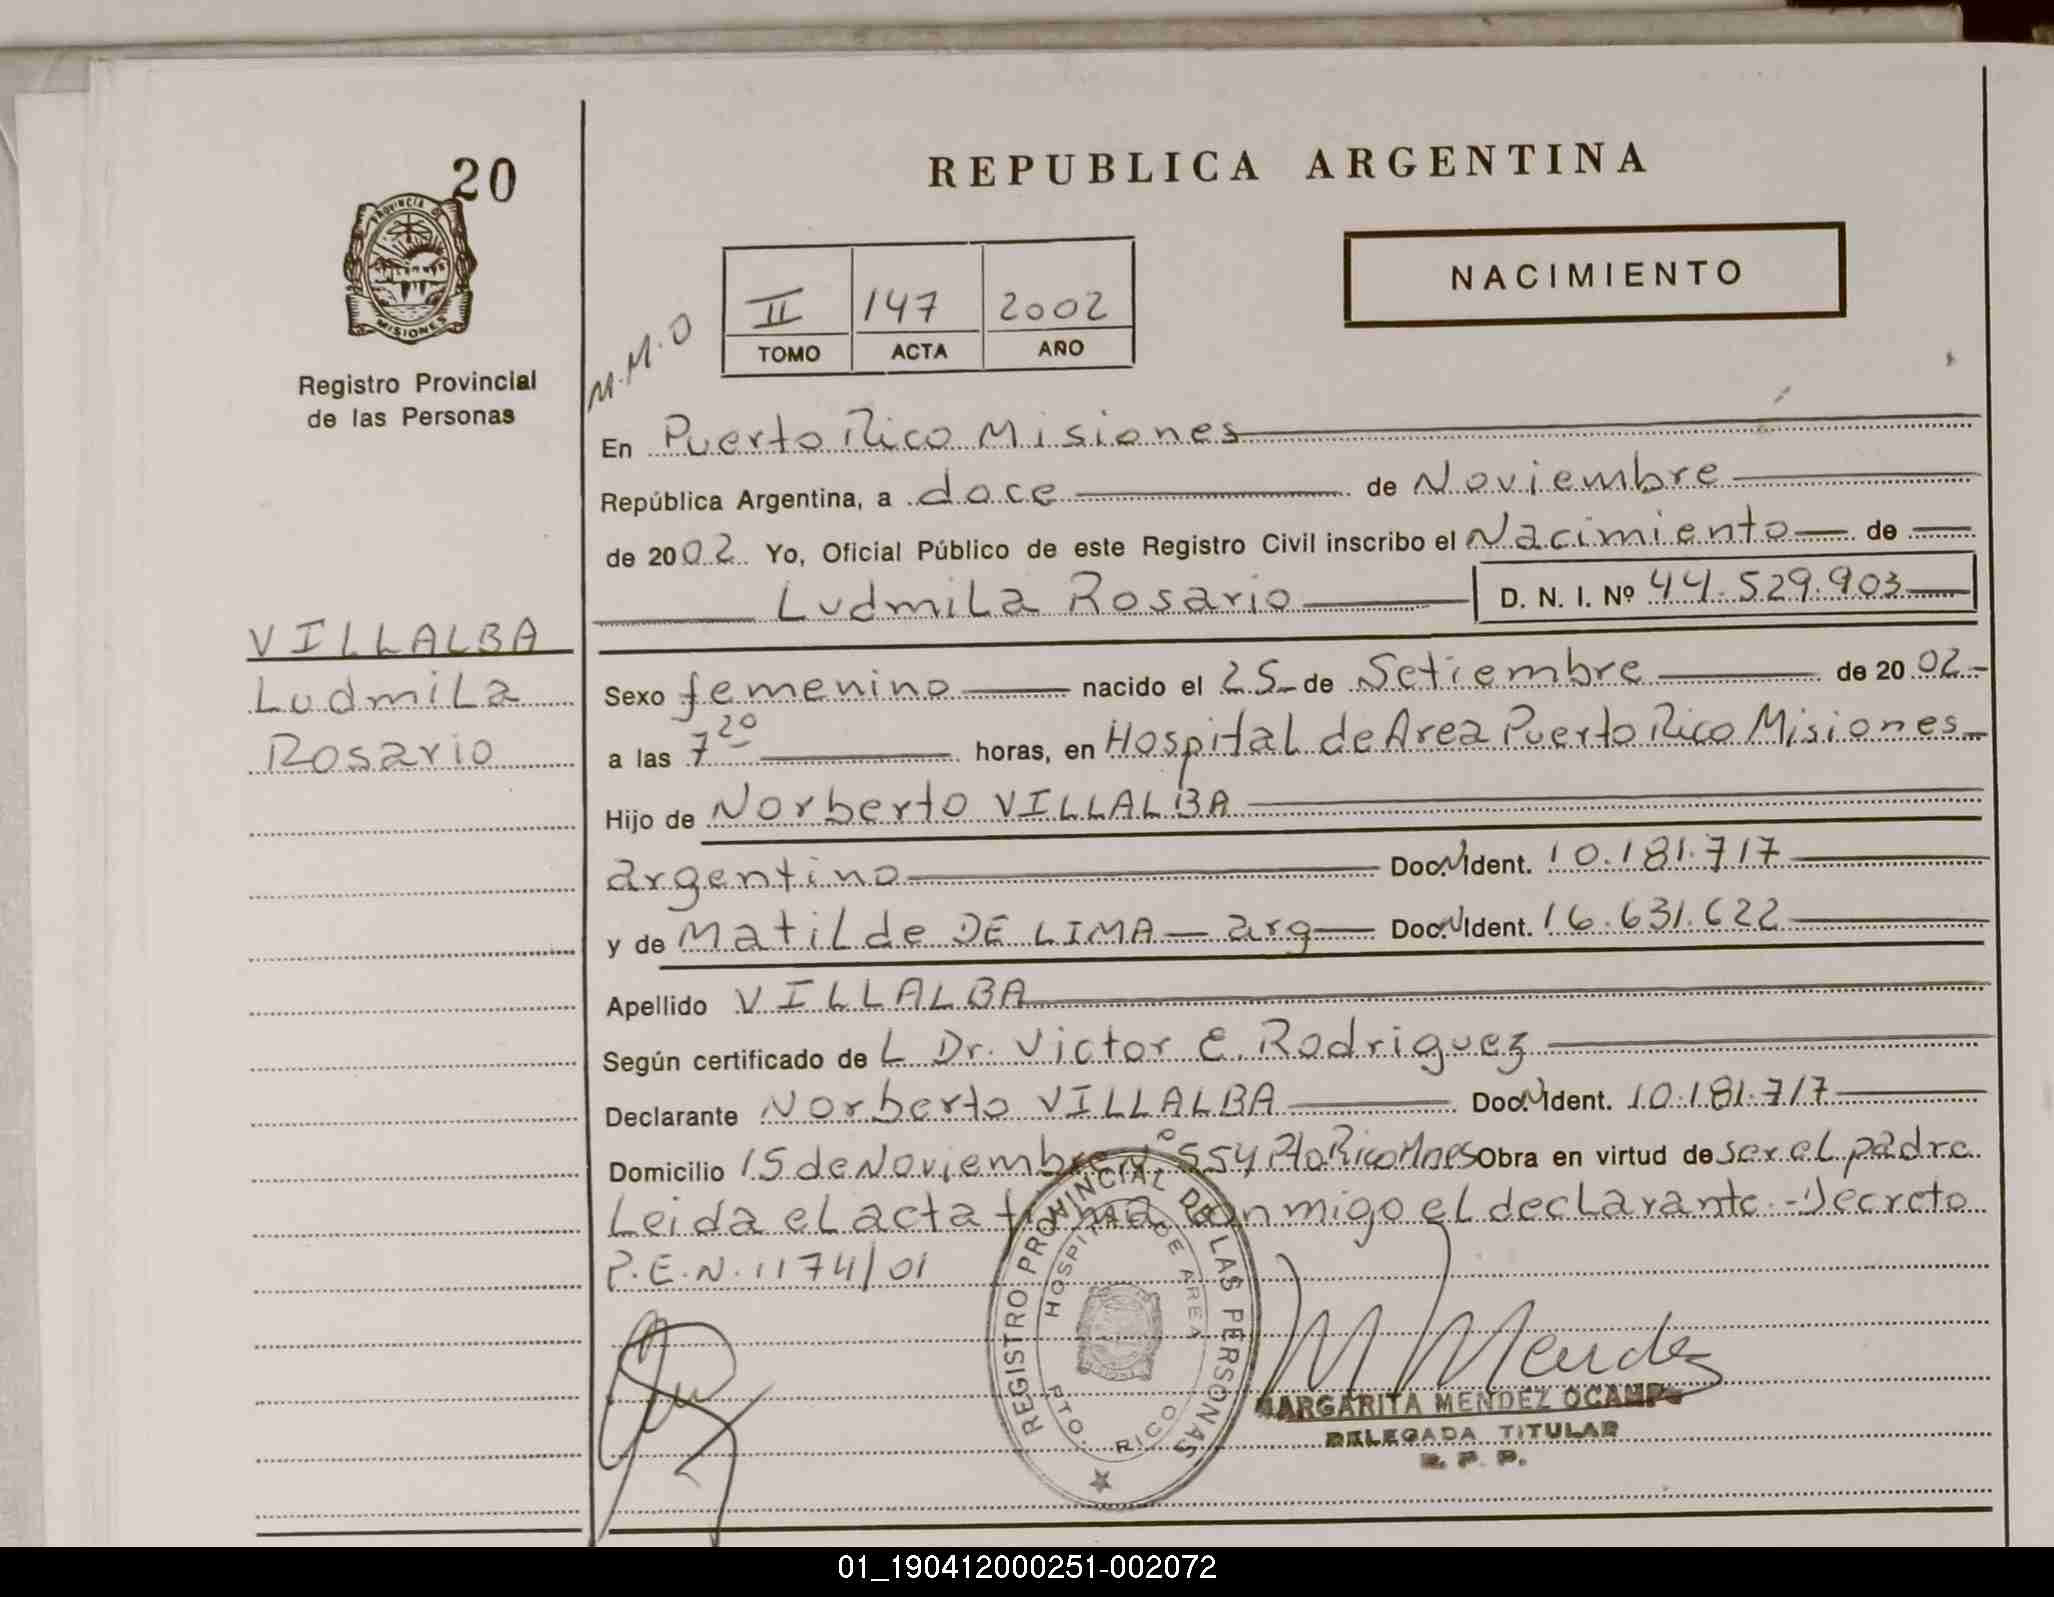 20
PROVINCIA DE
MISIONES
Registro Provincial
de las Personas
VILLALBA
Ludmila
Rosario
REPUBLICA ARGENTINA
NACIMIENTO
II 147 2002
TOMO ACTA AÑO
M.M.O
En Puerto Rico Misiones
República Argentina, a doce de Noviembre
de 2002 Yo, Oficial Público de este Registro Civil inscribo el Nacimiento de
Ludmila Rosario D. N. I. Nº 44.529.903
Sexo femenino nacido el 25 de Setiembre de 2002
a las 7 20 horas, en Hospital de Area Puerto Rico Misiones
Hijo de Norberto VILLALBA
argentino Doc. N Ident. 10.181.717
y de Matilde DE LIMA - arg Doc. N Ident. 16.631.622
Apellido VILLALBA
Según certificado de L Dr. Victor E. Rodriguez
Declarante Norberto VILLALBA Doc. N Ident. 10.181.717
Domicilio 15 de Noviembre Nº 554 Pto Rico Mnes Obra en virtud de ser el padre
Leida el acta firma conmigo el declarante.- Decreto
P.E.N. 1174/01
REGISTRO PROVINCIAL DE LAS PERSONAS
HOSPITAL DE AREA
PTO. RICO
M Mendez
MARGARITA MENDEZ OCAMPO
DELEGADA TITULAR
R. P. P.
01_190412000251-002072